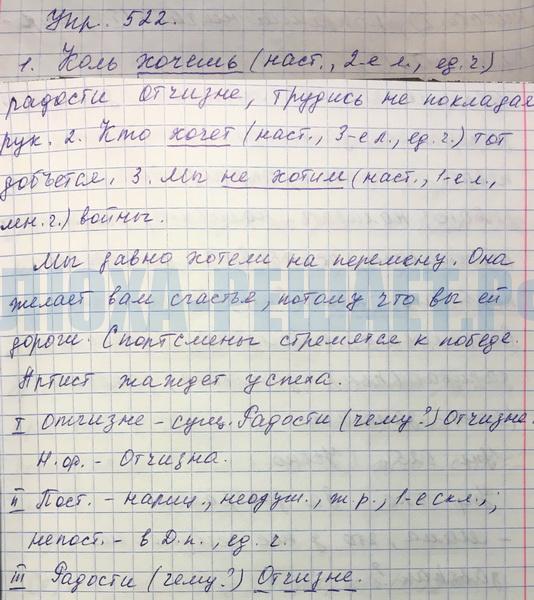 Упр. 522.
1. Коль хочешь (наст., 2-е л., ед.ч.)
радости Отчизне, трудись не покладая
рук. 2. Кто хочет (наст., 3-е л., ед.ч.) тот
добьётся. 3. Мы не хотим (наст., 1-е л.,
мн.ч.) войны.
Мы давно хотели на перемену. Она
желает вам счастья, потому что вы ей
дороги. Спортсмены стремятся к победе.
Артист жаждет успеха.
I Отчизне – сущ. Радости (чему?) Отчизне.
Н.ф. – Отчизна.
II Пост. – нариц., неодуш., ж.р., 1-е скл.,;
непост. – в Д.п., ед. ч.
III Радости (чему?) Отчизне.
ЛЮХА-РЕШАЕТ.РФ